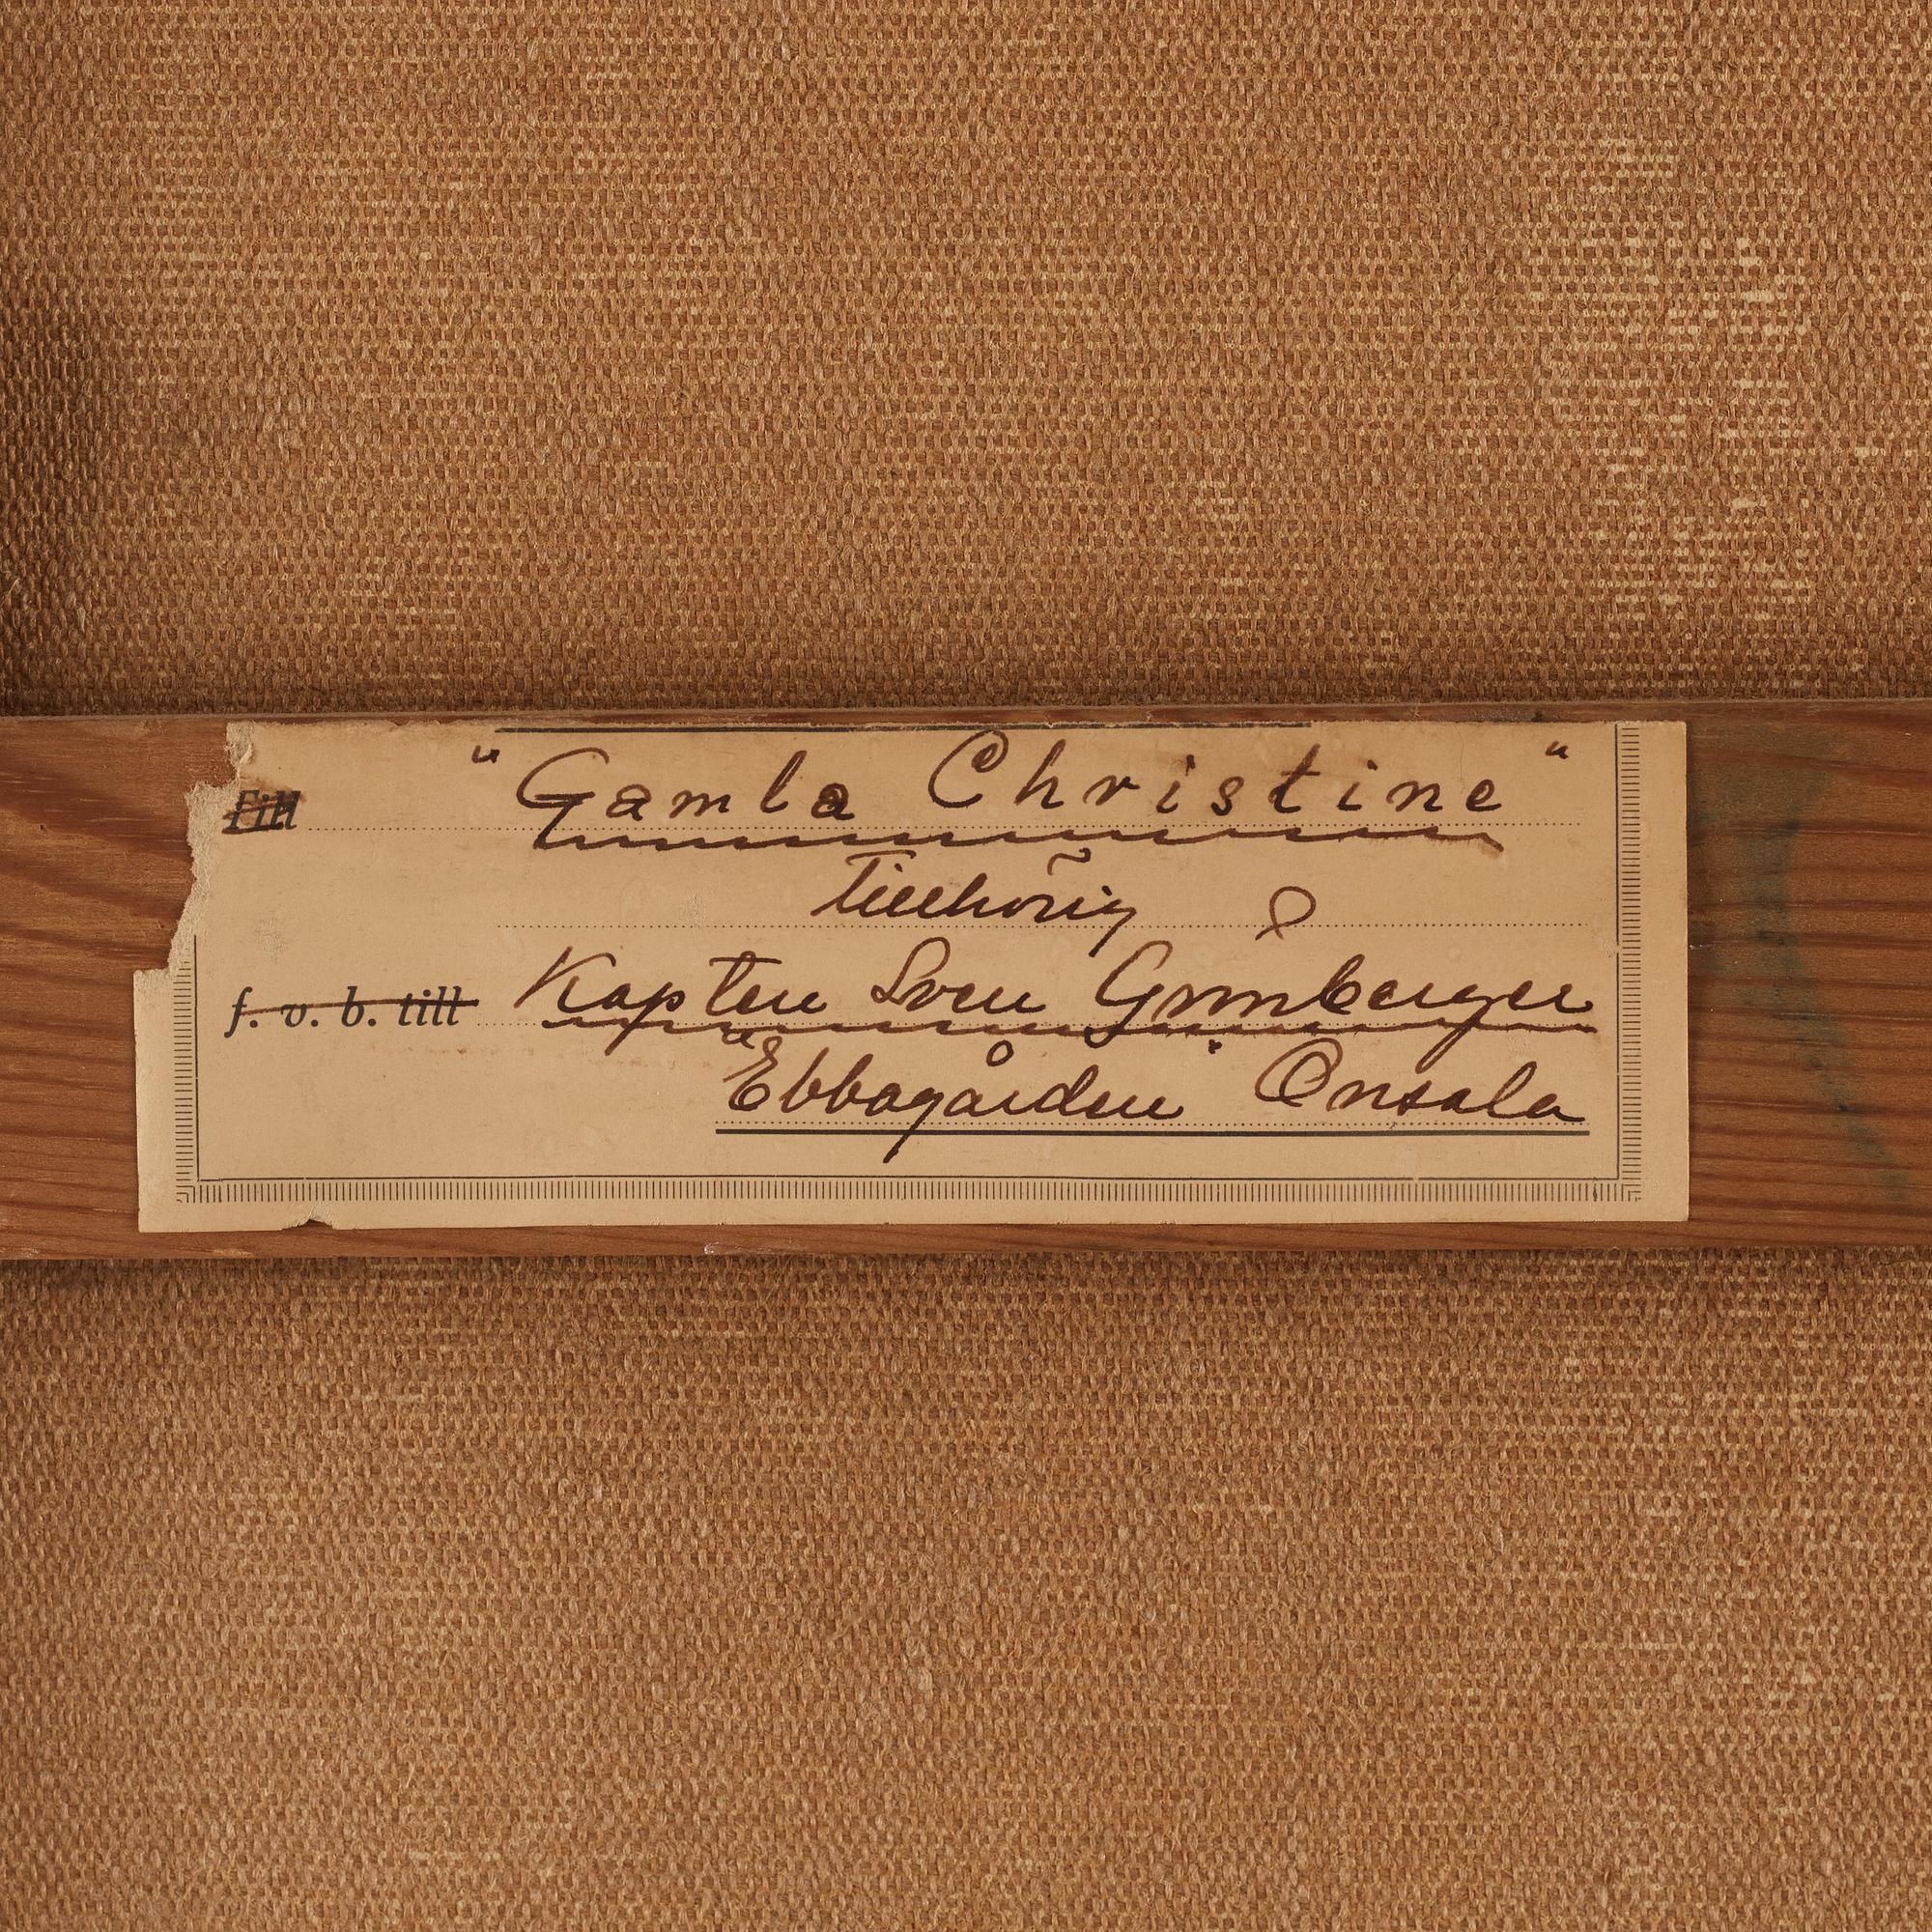 "Gamla Christine"
Till
Tillhörig
f. v. b. till Kapten Sven Grunberger
Ebbagården Onsala